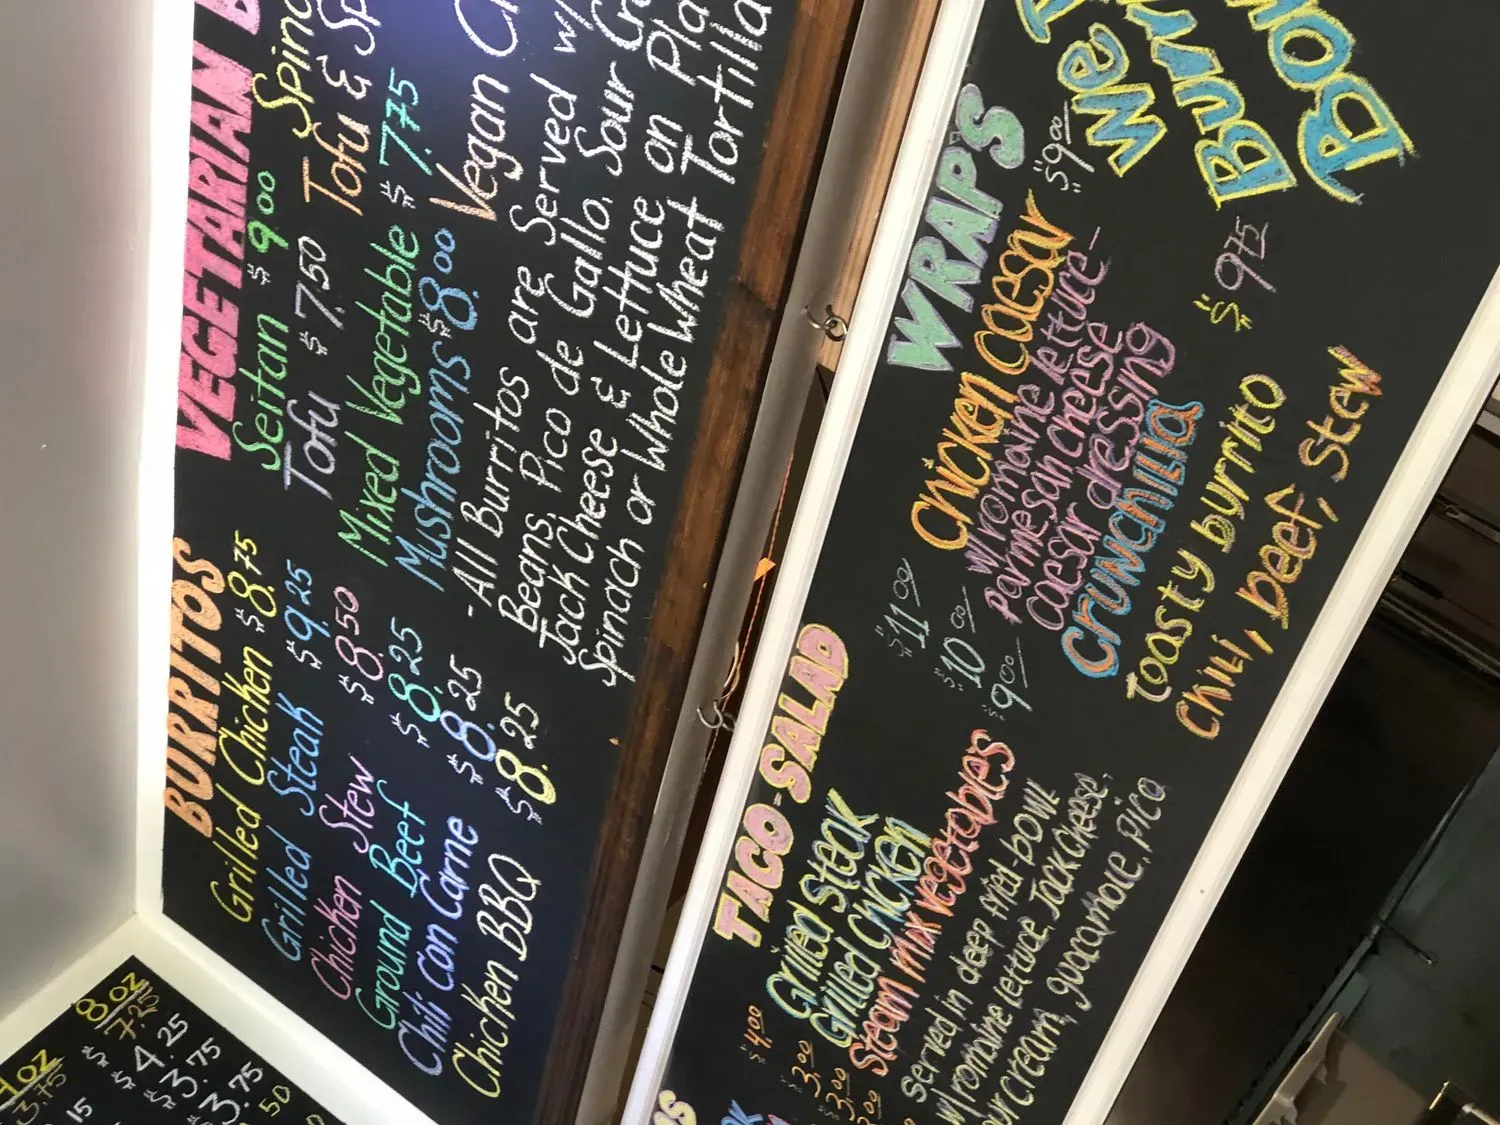 BURRITOS
Grilled Chicken $8.75
Grilled Steak $9.25
Chicken Stew $8.50
Ground Beef $8.25
Chili Con Carne $8.25
Chicken BBQ $8.25
VEGETARIAN B
Seitan $9.00
Tofu $7.50
Mixed Vegetable $7.75
Mushrooms $8.00
Tofu & Sp
Vegan
- All Burritos are Served w/
Beans, Pico de Gallo, Sour
Jack Cheese & Lettuce on
Spinach or Whole Wheat Tortilla
8 oz
$4.25
$3.75
3.75
50
4 oz
3.75
15
TACO-SALAD
Grilled Steak $11.00
Grilled Chicken $10.00
Steam Mix Vegetables $9.00
served in deep fried-bowl
w/romaine lettuce, Jack Cheese,
our cream, guacamole, pico
$4.00
3.00
3.00
WRAPS
Chicken Caesar $9.00
w/romaine lettuce-
Parmesan cheese
Caesar dressing
Crunchilla $9.75
Toasty burrito
Chili, beef, Stew
We
Bur
Bo